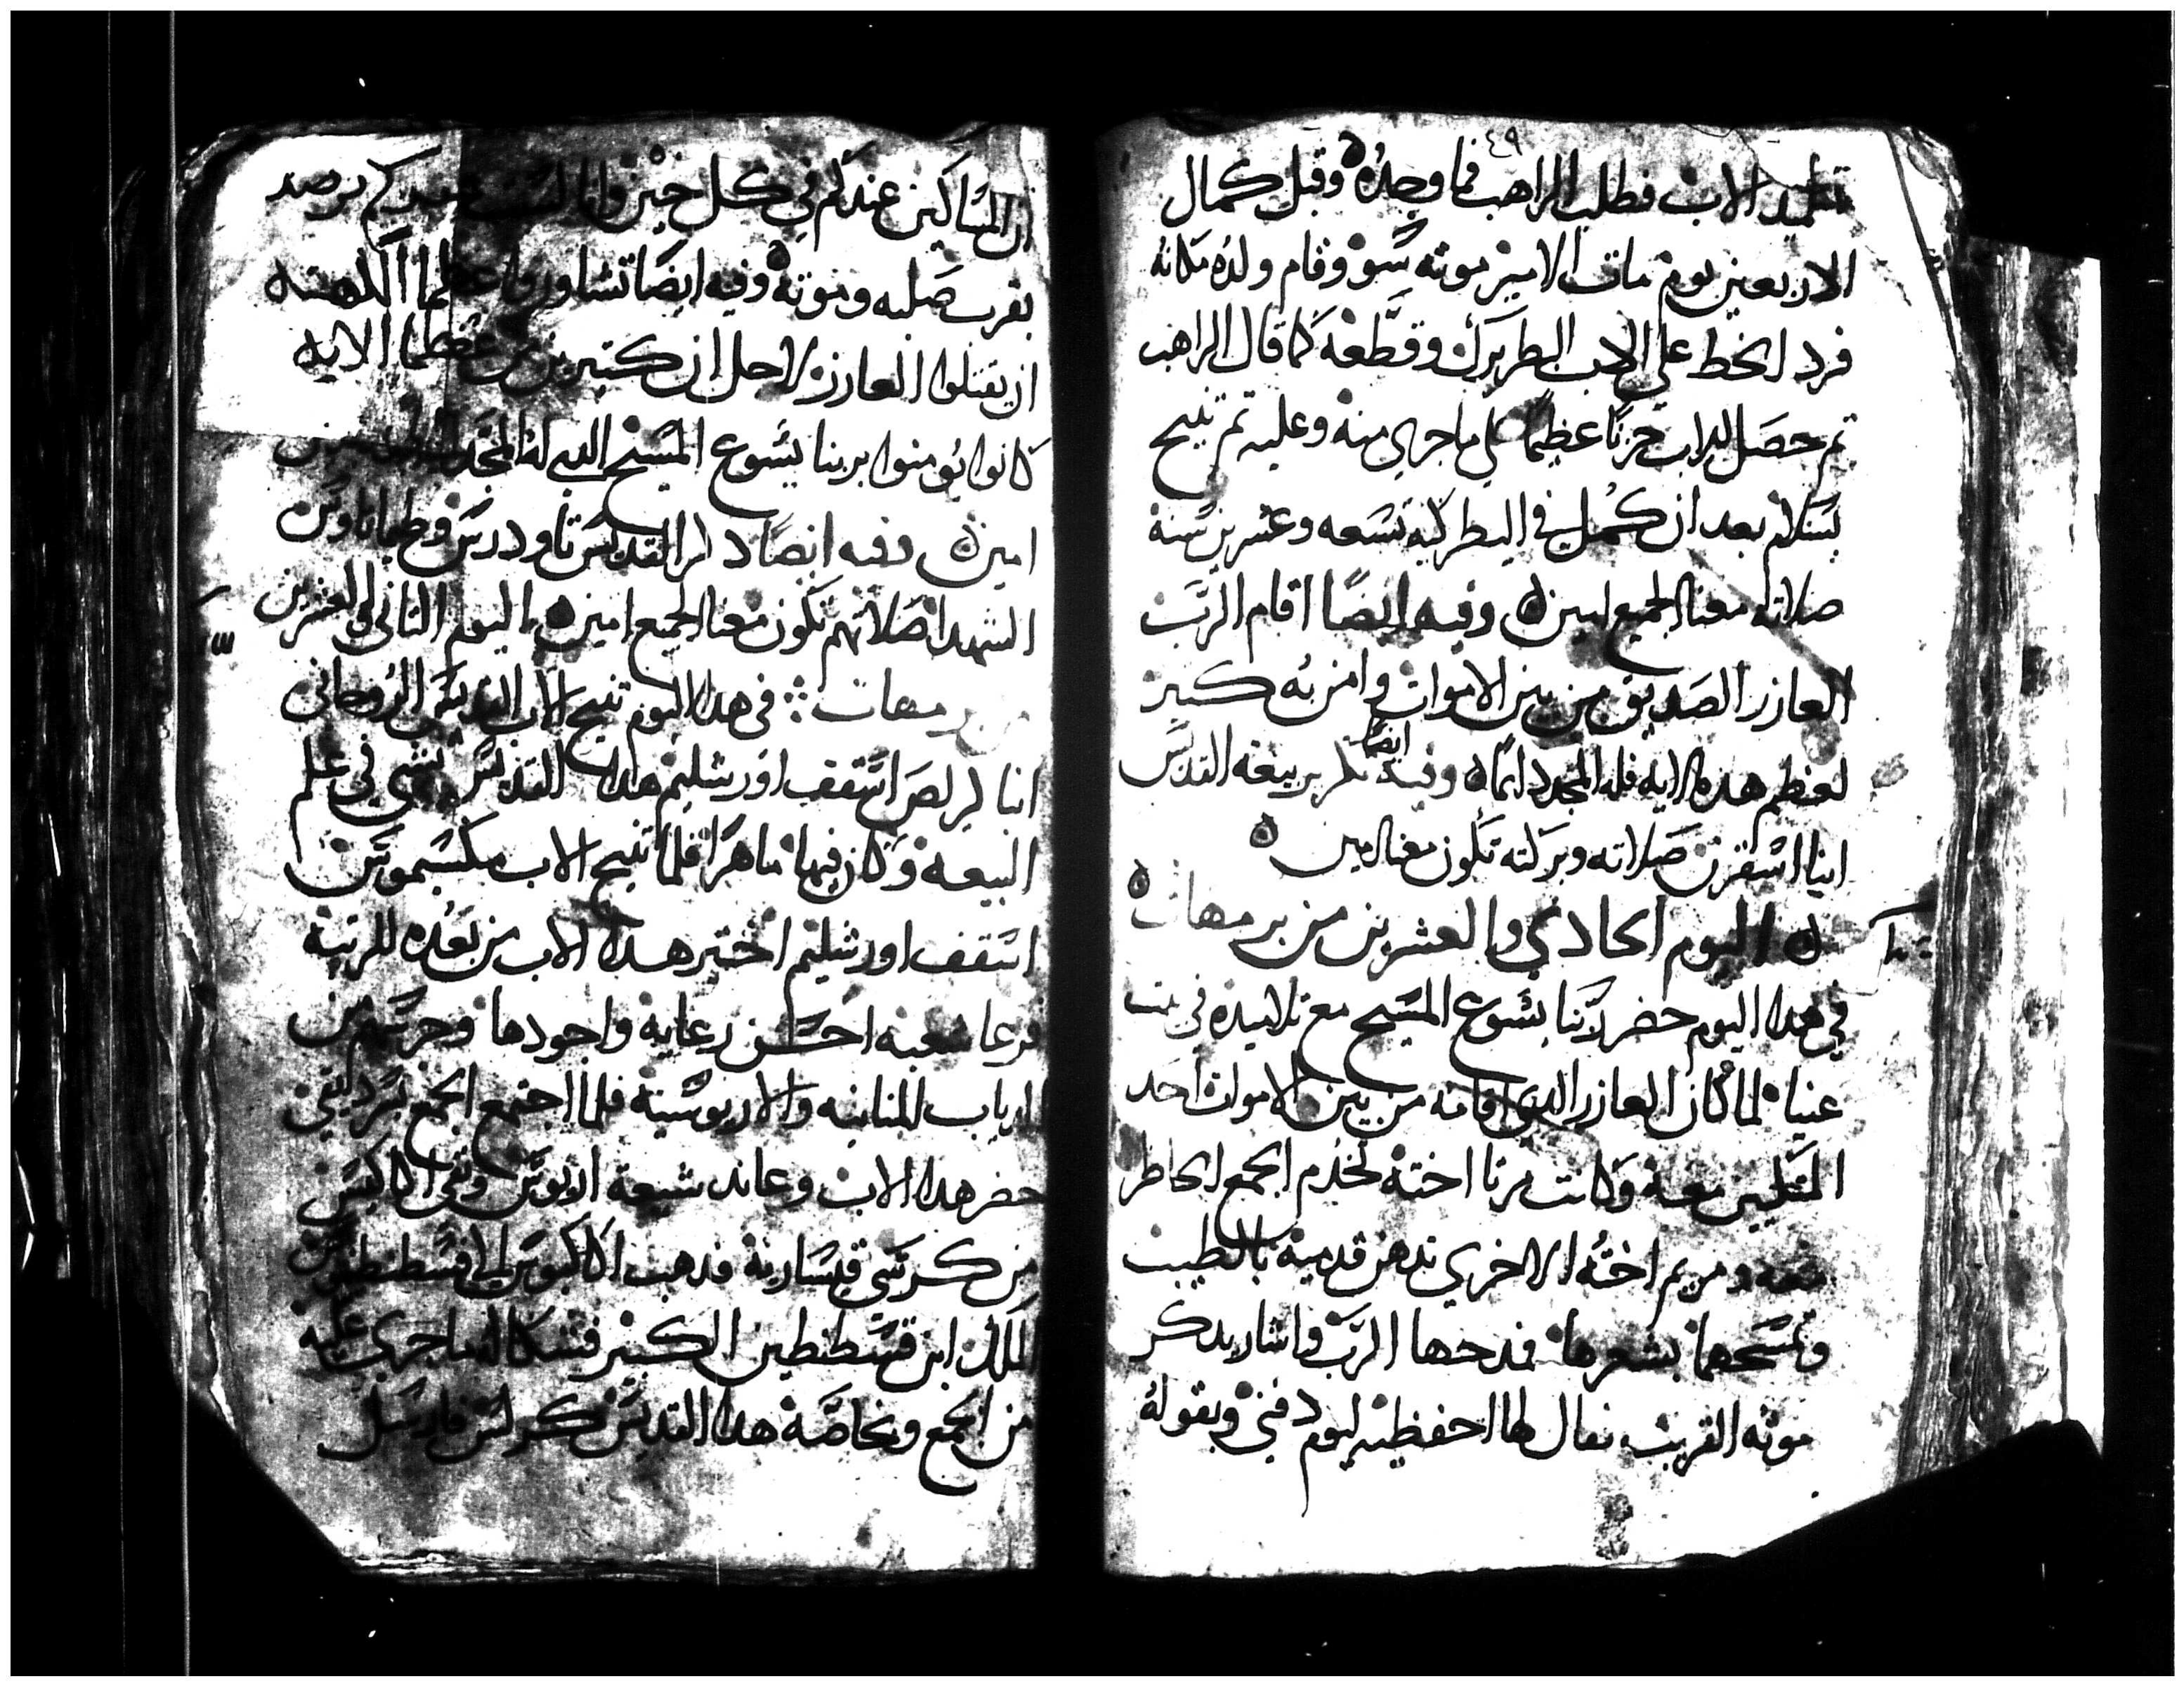 ٤٩
تلميد الاب فطلب الراهب فما وجده وقبل كمال
الاربعين يوم مات الامير موته سوو وقام ولده مكانه
فرد الخط على الاب البطريرك وقطعه كما قال الراهب
تم حصل للاب حزنا عظيما على ما جري منه وعليه تم تنيح
بسلام بعد ان كمل في البطركيه تسعه وعشرين سنة
صلاته معنا لجميع امين وفيه ايضا اقام الرب
العازر الصديق من بين الاموات وامن به كتير
لعظم هده الايه فله المجد دايما وفيه ايضا تكريز بيعه القديس
انبا صلاته وبركته تكون معنا امين
اليوم الحادي والعشرين من برمهات
في هدا اليوم حضر ربنا يسوع المسيح مع تلاميده في بيت
عنيا لما كان العازر الدي اقامه من بين الاموات احد
المتكيين معه وكانت مرتا اخته تخدم الجمع الحاطر
معه ومريم اخته الاخري تدهن قدميه بالطيب
وتمسحهما بشعرها فمدحها الرب واشار بدكر
موته القريب فقال لها احفظيه ليوم دفني وبقوله
ان المساكين عندكم في كل حين وانا لست عندكم
بقرب صلبه وموته وفيه ايضا تشاوروا عظما الكهنه
ان يقتلوا العازر لاجل ان كتيرين من عظما الايه
كانوا يومنوا بربنا يسوع المسيح الدي له المجد
امين وفيه ايضا القديس تاودرس
الشهدا صلاتهم تكون معنا لجميع امين اليوم التاني والعشرين
برمهات في هدا اليوم تنيح الاب القديس الروحاني
انبا كرلص اسقف اورشليم هدا القديس نشي في علم
البيعه وكان فيها ماهرا فلما تنيح الاب مكسيموس
اسقف اورشليم اختير هدا الاب من بعده للرتبة
فرعا شعبه احسن رعايه واجودها وحرسهم من
الدياب المنانيه والاريوسية فلما اجتمع الجمع بسرديقي
حضر هدا الاب وعاند شيعة اريوس ونفي اكاكيس
من كرسي قيسارية فدهب اكاكيوس الي قسطنطين
الملك ابن قسطنطين الكبير فشكا له ما جري عليه
من الجمع وبخاصة هدا القديس كرلس فارسل